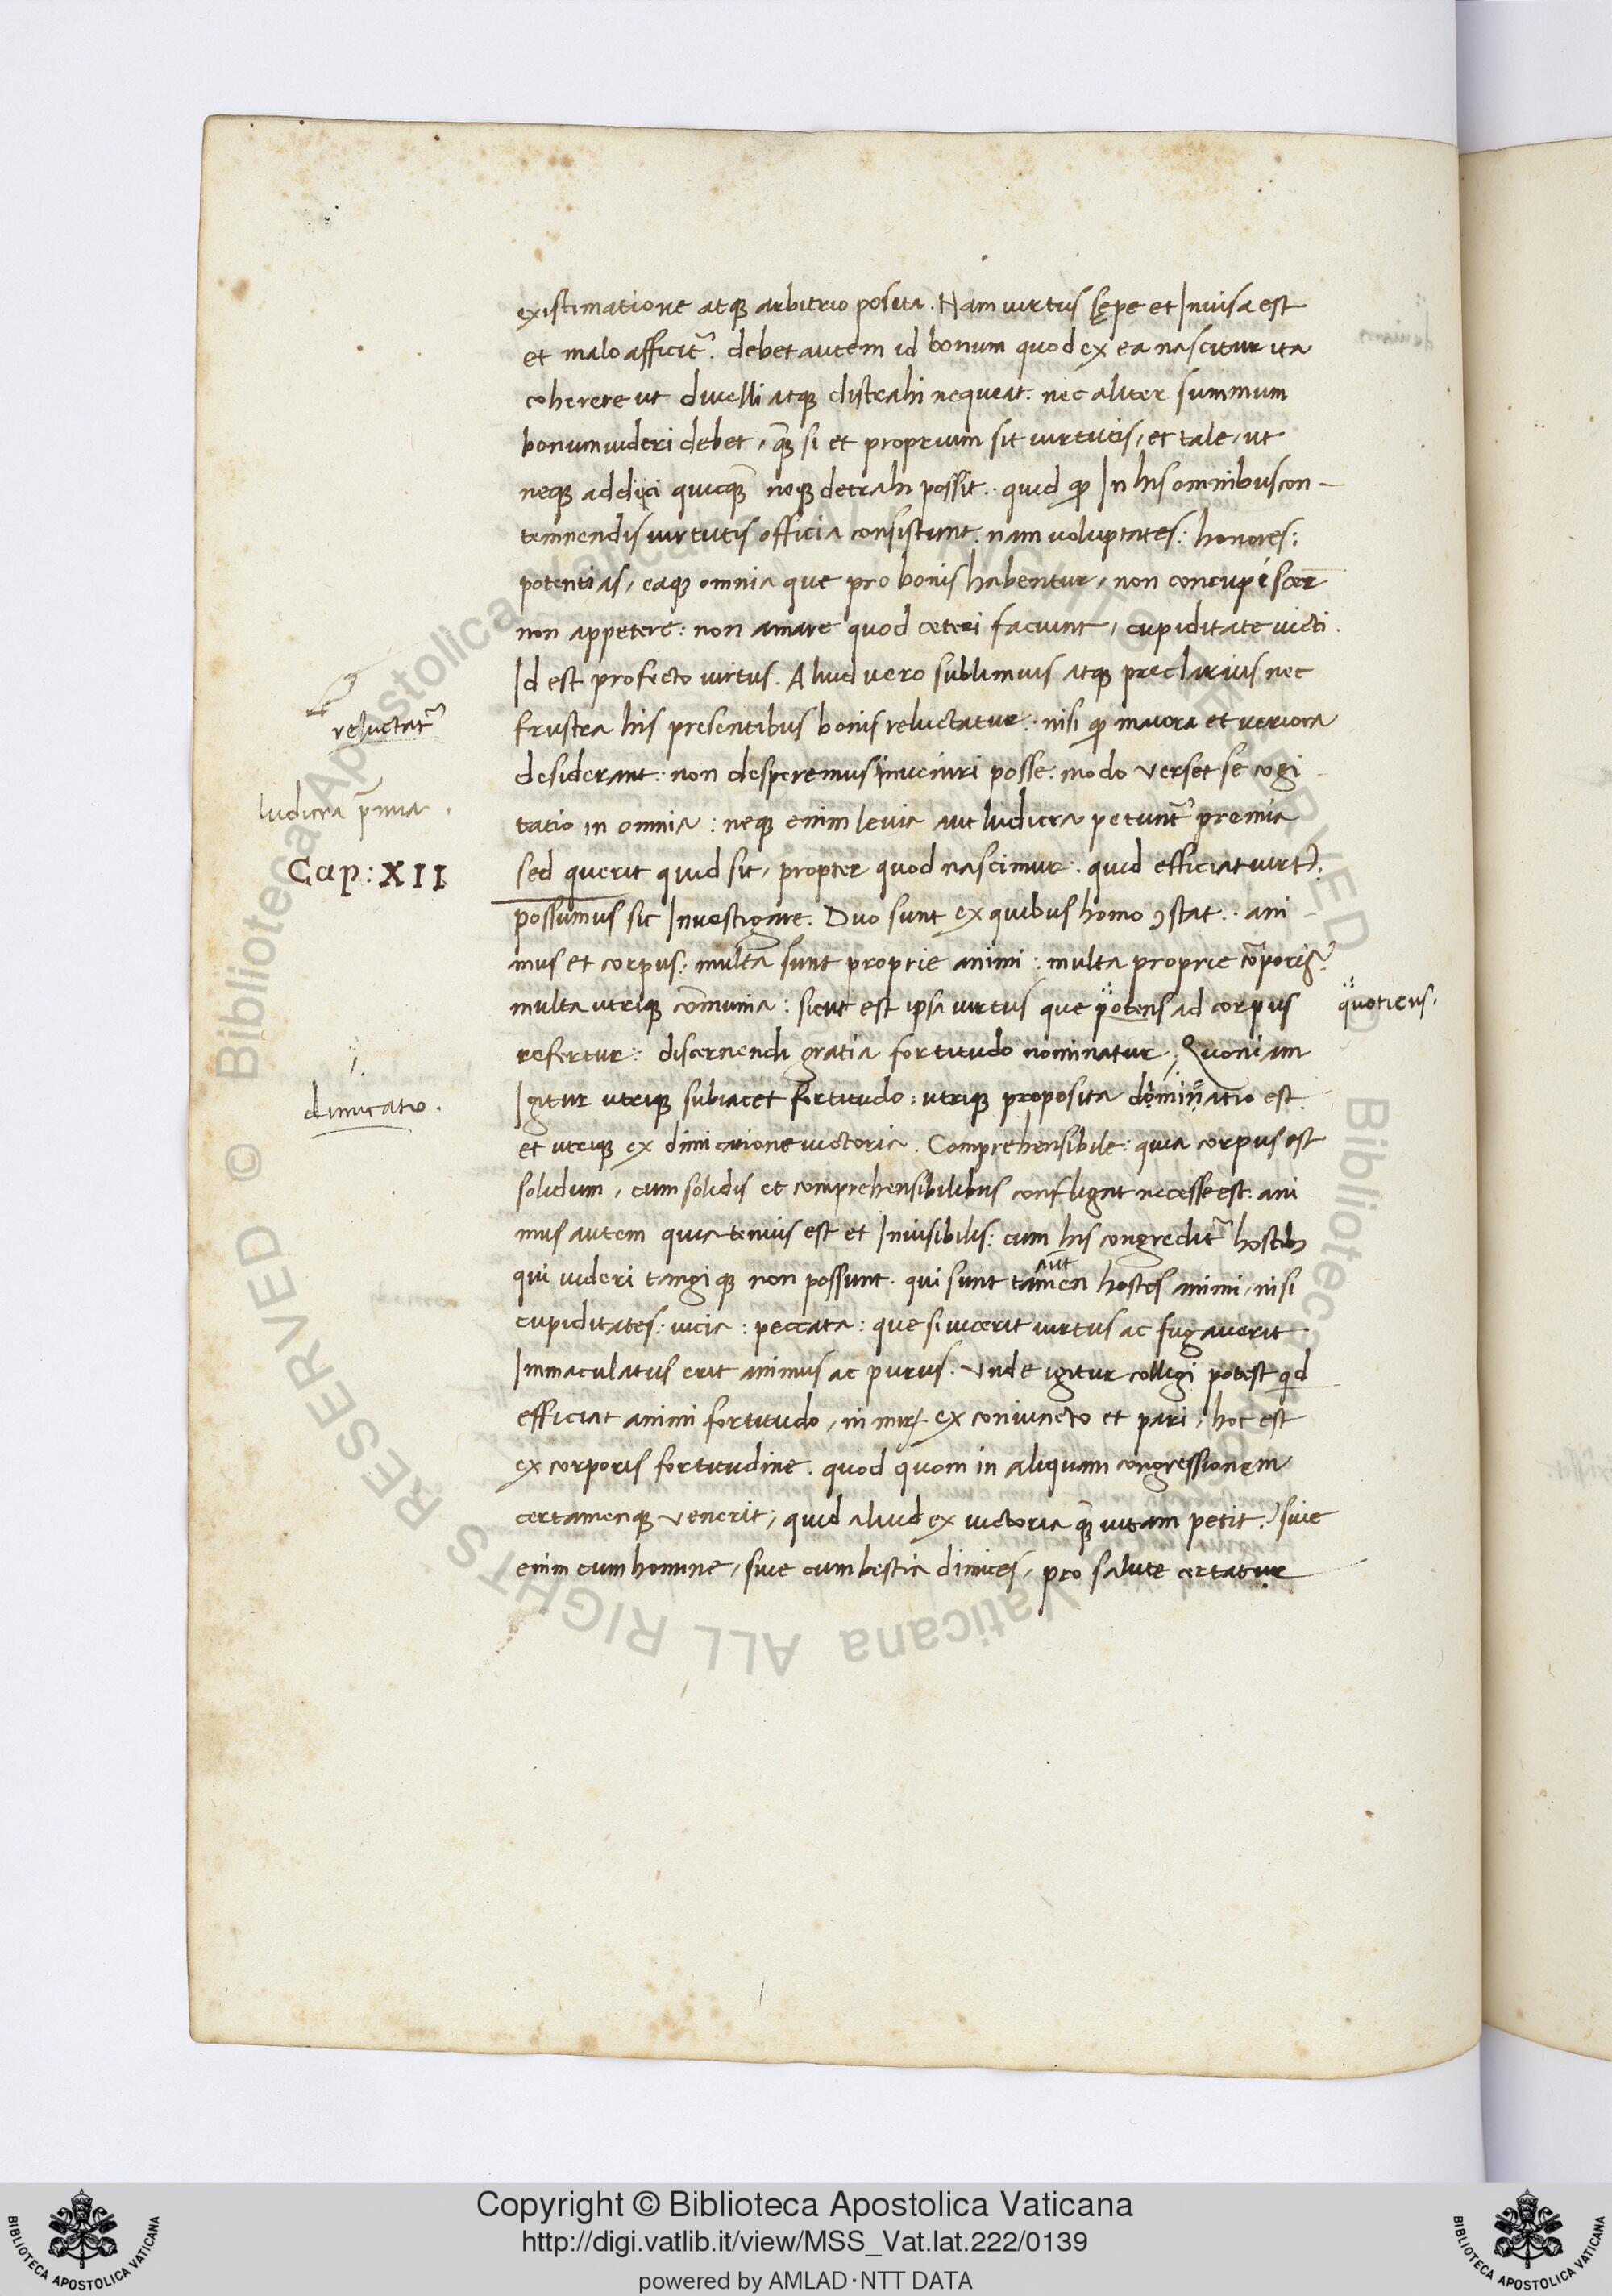 existimatione atqꝫ arbitrio posita. Nam uirtus sępe et Inuisa est
et malo afficit᷑. debet autem id bonum quod ex ea nascitur ita
coherere ut diuelli atqꝫ distrahi nequeat: nec aliter summum
bonum uideri debet, qꝫ̃ si et proprium sit uirtutis, et tale, ut
neqꝫ addici quicqꝫ̃ neqꝫ detrahi possit.. quid ꝙ In his omnibus con-
temnendis uirtutis officia consistunt. nam uoluptates: honores:
potentias, eaqꝫ omnia que pro bonis habentur, non concupiscer̄
non appetere: non amare quod ceteri faciunt, cupiditate uicti.
Id est profecto uirtus. Aliud uero sublimius atqꝫ preclarius nec
frustra his presentibus bonis reluctatur: nisi ꝙ maiora et ueriora
desiderant: non desperemus inueniri posse: modo verset se cogi-
tatio in omnia: neqꝫ enim leuia aut ludicra petunt᷑ premia
sed querit quid sit, propter quod nascimur: quid efficiat uirt᷒.
possumus sic Inuestigare. Duo sunt ex quibus homo ꝯstat.. ani-
mus et corpus: multa sunt proprie animi: multa proprie cōporis.
multa utriqꝫ cōmunia: sicut est ipsa uirtus que potens ad corpus
refertur: discernendi gratia fortitudo nominatur, Quoniam
Igitur utriqꝫ subiacet fortitudo: utriqꝫ proposita dominatio est.
et utriqꝫ ex dimicatione uictoria. Comprehensibile: quia corpus est
solidum, cum solidis et comprehensibilibus confligat necesse est: ani
mus autem quia tenuis est et Inuisibilis: cum his congredit᷑ hostibꝫ
aut
qui uideri tangiqꝫ non possunt. qui sunt tamen hostes animi, nisi
cupiditates: uicia: peccata: que si uicerit uirtus ac fugauerit
Immaculatus erit animus ac purus. Vnde igitur colligi potest qd
efficiat animi fortitudo, ni mirꝫ. ex coniuncto et pari, hoc est
ex corporis fortitudine. quod quom in aliquam congressionem
certamenqꝫ venerit, quid aliud ex uictoria qꝫ̃ uitam petit? siue
enim cum homine, siue cum bestia dimices, pro salute certatur
reluctat᷑
ludicra p̄mia.
Cap: XII
quotiens.
dimicatio.
Copyright © Biblioteca Apostolica Vaticana
http://digi.vatlib.it/view/MSS_Vat.lat.222/0139
powered by AMLAD·NTT DATA
BIBLIOTECA APOSTOLICA VATICANA
BIBLIOTECA APOSTOLICA VATICANA
© Biblioteca Apostolica Vaticana ALL RIGHTS RESERVED
© Biblioteca Apostolica Vaticana ALL RIGHTS RESERVED